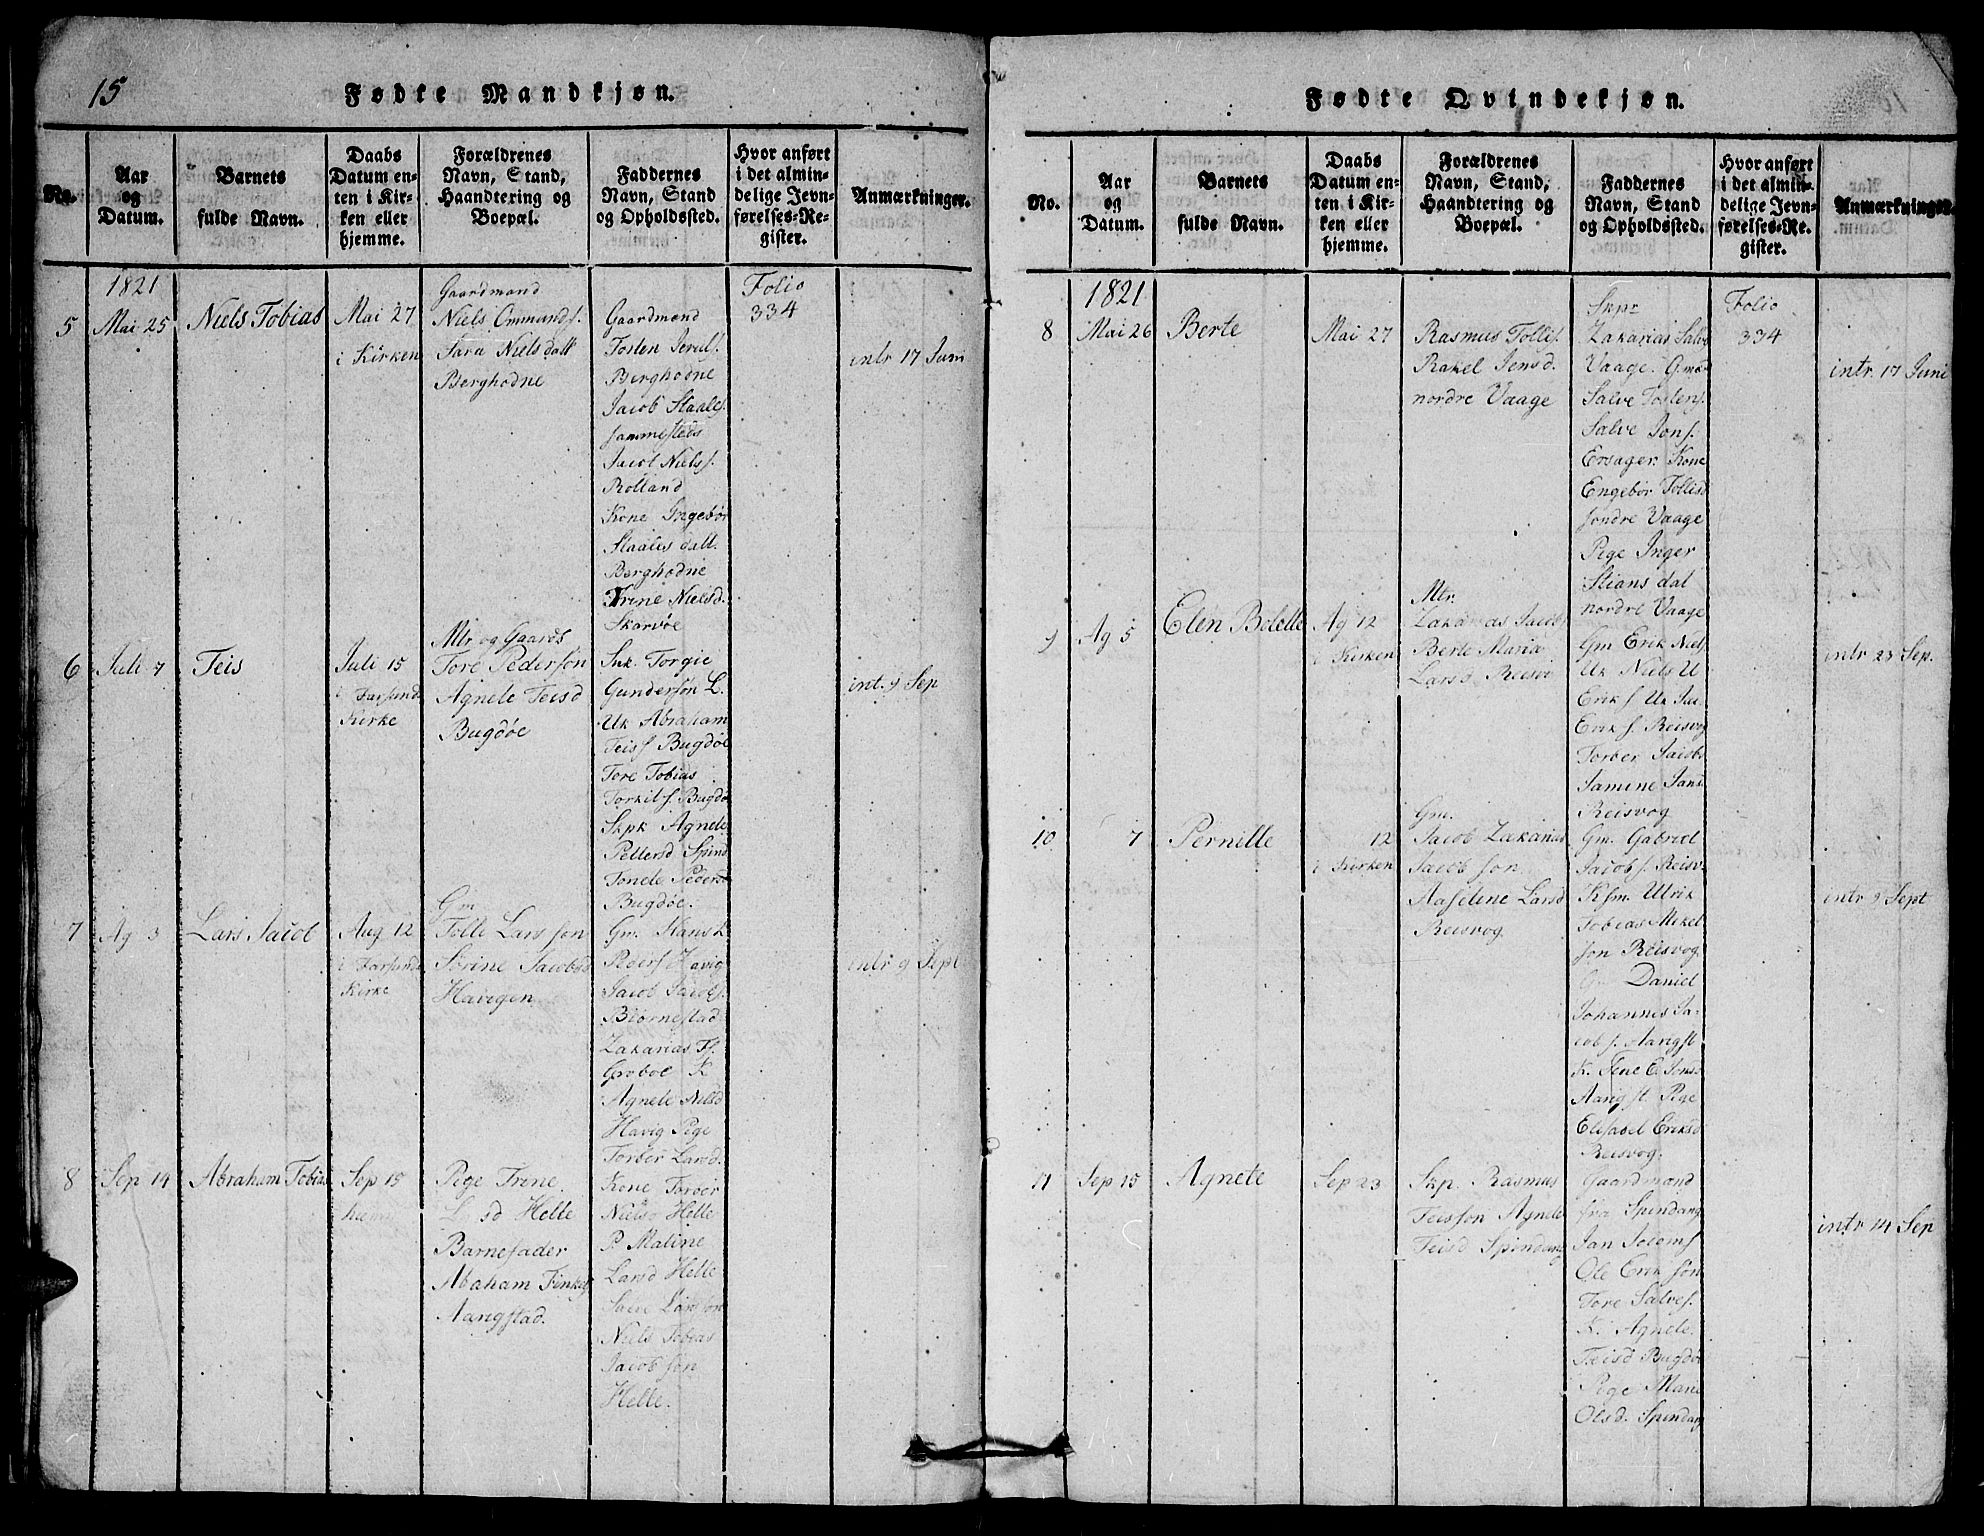 15
Fødte Mandkjøn.
No.
Aar
og
Datum.
Barnets
fulde Navn.
Daabs
Datum en-
ten i Kir-
ken eller
hjemme.
Forældrenes
Navn, Stand,
Haandtering og
Boepæl.
Faddernes
Navn, Stand
og Opholdssted.
Hvor anført
i det almin-
delige Jevn-
førelses-Re-
gister.
Anmærkninger.
1821
5
Mai 25
Niels Tobias
Mai 27
i Kirken
Gaardmand
Niels Ommunds.
Sara Nielsdatt
Berghodne
Gaardmand
Tosten
Berghodne
Jacob Staales.
sammesteds
Jacob Niels s.
Rolland
Kone Ingebør
Staales datt.
Berghodne
Trine Nielsd.
Skarvøe
Folio
334
intr 17 Juni
6
Juli 7
Teis
Juli 15
i Farsund
Kirke
Mtr og Gaards
Tore Pedersøn
Agnete Teisd
Bugdøe
Snk. Torgie
Gundersøn L.
Uk Abraham
Teiss Bugdøe
Tore Tobias
Torkils. Bugdø
Skpk Agnete
Pettersd Spind
Tonete Pedersd
Bugdøe.
int. 9 Sep
7
Ag 3
Lars Jacob
Aug 12
i Farsunds
Kirke
Gm
Tolle Lars søn
Sørine Jacobsd
Havigen
Gm. Hans L
Peders Havig
Jacob Jacobs.
Biørnestad
Zakarias T s.
Groboe K
Agnete Nilsd
Havig Pige
Torber Larsd.
intr 9 Sept
8
Sep 14
Abraham Tobias
Sep 15
hiem
Pige Trine
Helle
Barnefader
Abaham
Aangstad.
Kone Torber
Nielsd Helle
P. Maline
Larsd Helle
Salve Larssøn
Niels Tobias
Jacob søn
Helle.
Fødte Qvindekjøn.
No.
Aar
og
Datum.
Barnets
fulde Navn.
Daabs
Datum en-
ten i Kir-
ken eller
hjemme.
Forældrenes
Navn, Stand,
Haandtering og
Boepæl.
Faddernes
Navn, Stand
og Opholdssted.
Hvor anført
i det almin-
delige Jevn-
førelses-Re-
gister.
Anmærkninger.
1821
8
Mai 26
Berte
Mai 27
Rasmus Tollis.
Rakel Jensd.
nordre Vaage
Skpr
Zakarias Salve
Vaage. Gmd
Salve Tostens.
Salve Jons.
Ersager. Kone
Engebør Tollisd
søndre Vaage
Pige Inger
Stians dat
nordre Vaage
Folio
334
intr. 17 Juni
9
Ag 5
Elen Bolette
Ag 12
i Kirken
Mtr.
Zakarias Jacobs
Berte Maria
Larsd Reisvi
Gm Erik Niels
Uk Niels U
Erik s Uk Jac
Erik s. Reisvog
Torber Jacobs
Jamine Jansd
Reisvog
intr 23 Sep.
10
7
Pernille
12
i Kirken
Gm.
Jacob Zakarias
Jacob søn
Aaselene Larsd
Reisvog
Gm. Gabriel
Jacobs. Reisv.
Ksm. Ulrik
Tobias Mikel
søn Reisvog
Gm Daniel
Johannis Ja-
cob s. Aangst
K. Tine E. Jonsd
Aangst. Pige
Elisabel Eriksd
Reisvog.
intr 9 Sept
11
Sep 15
Agnete
Sep 23
Skp. Rasmus
Teissøn Agnete
Teisd Spindang
Gaardmand
fra Spindang
Jan
Ole Erik søn
Tore Salves.
K. Agnete
Teisd Bugdøe
Pige Mari
Olsd. Spindang
intr 14 Sep